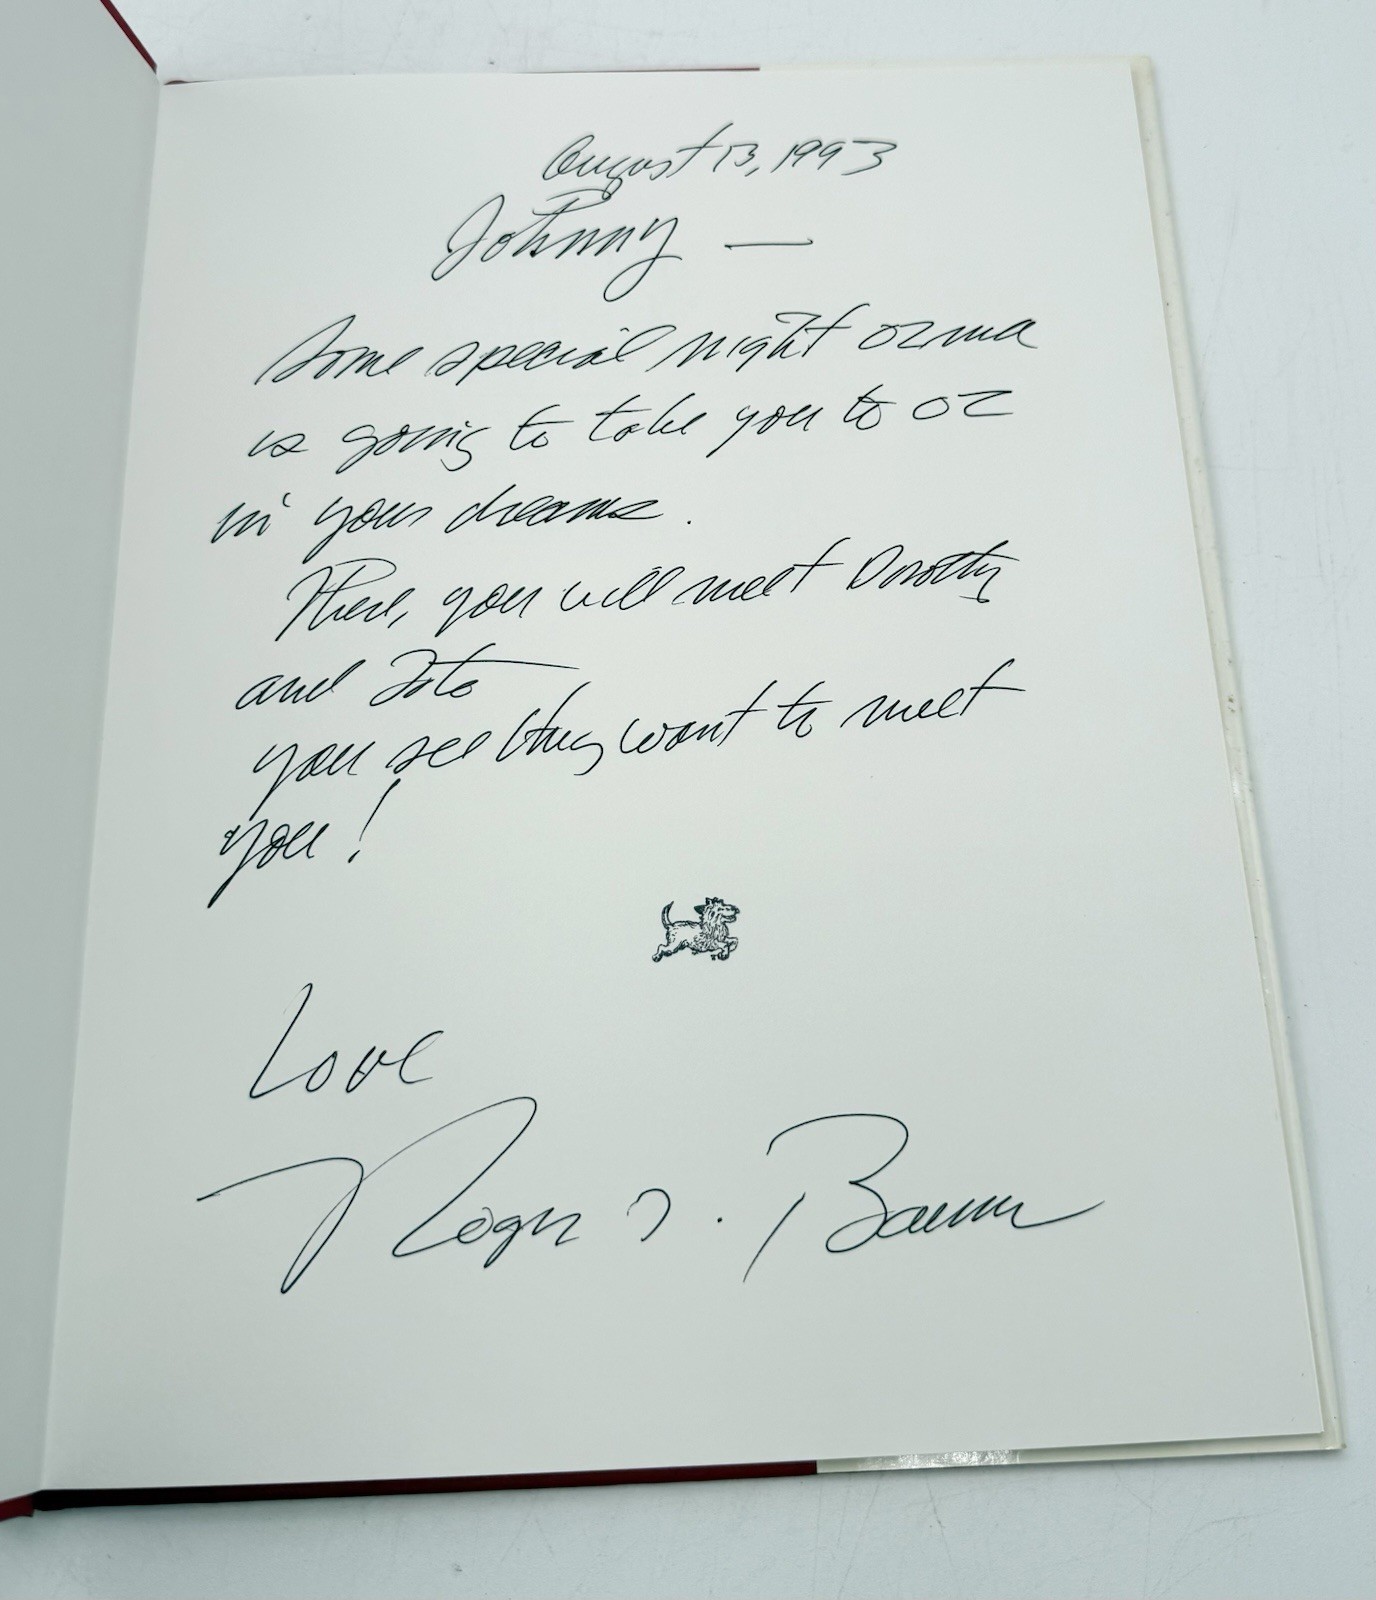 August 13, 1993
Johnny —
Some special night Ozma
is going to take you to OZ
in your dreams.
There, you will meet Dorothy
and Toto —
you see they want to meet
you!
Love
Roger S. Baum